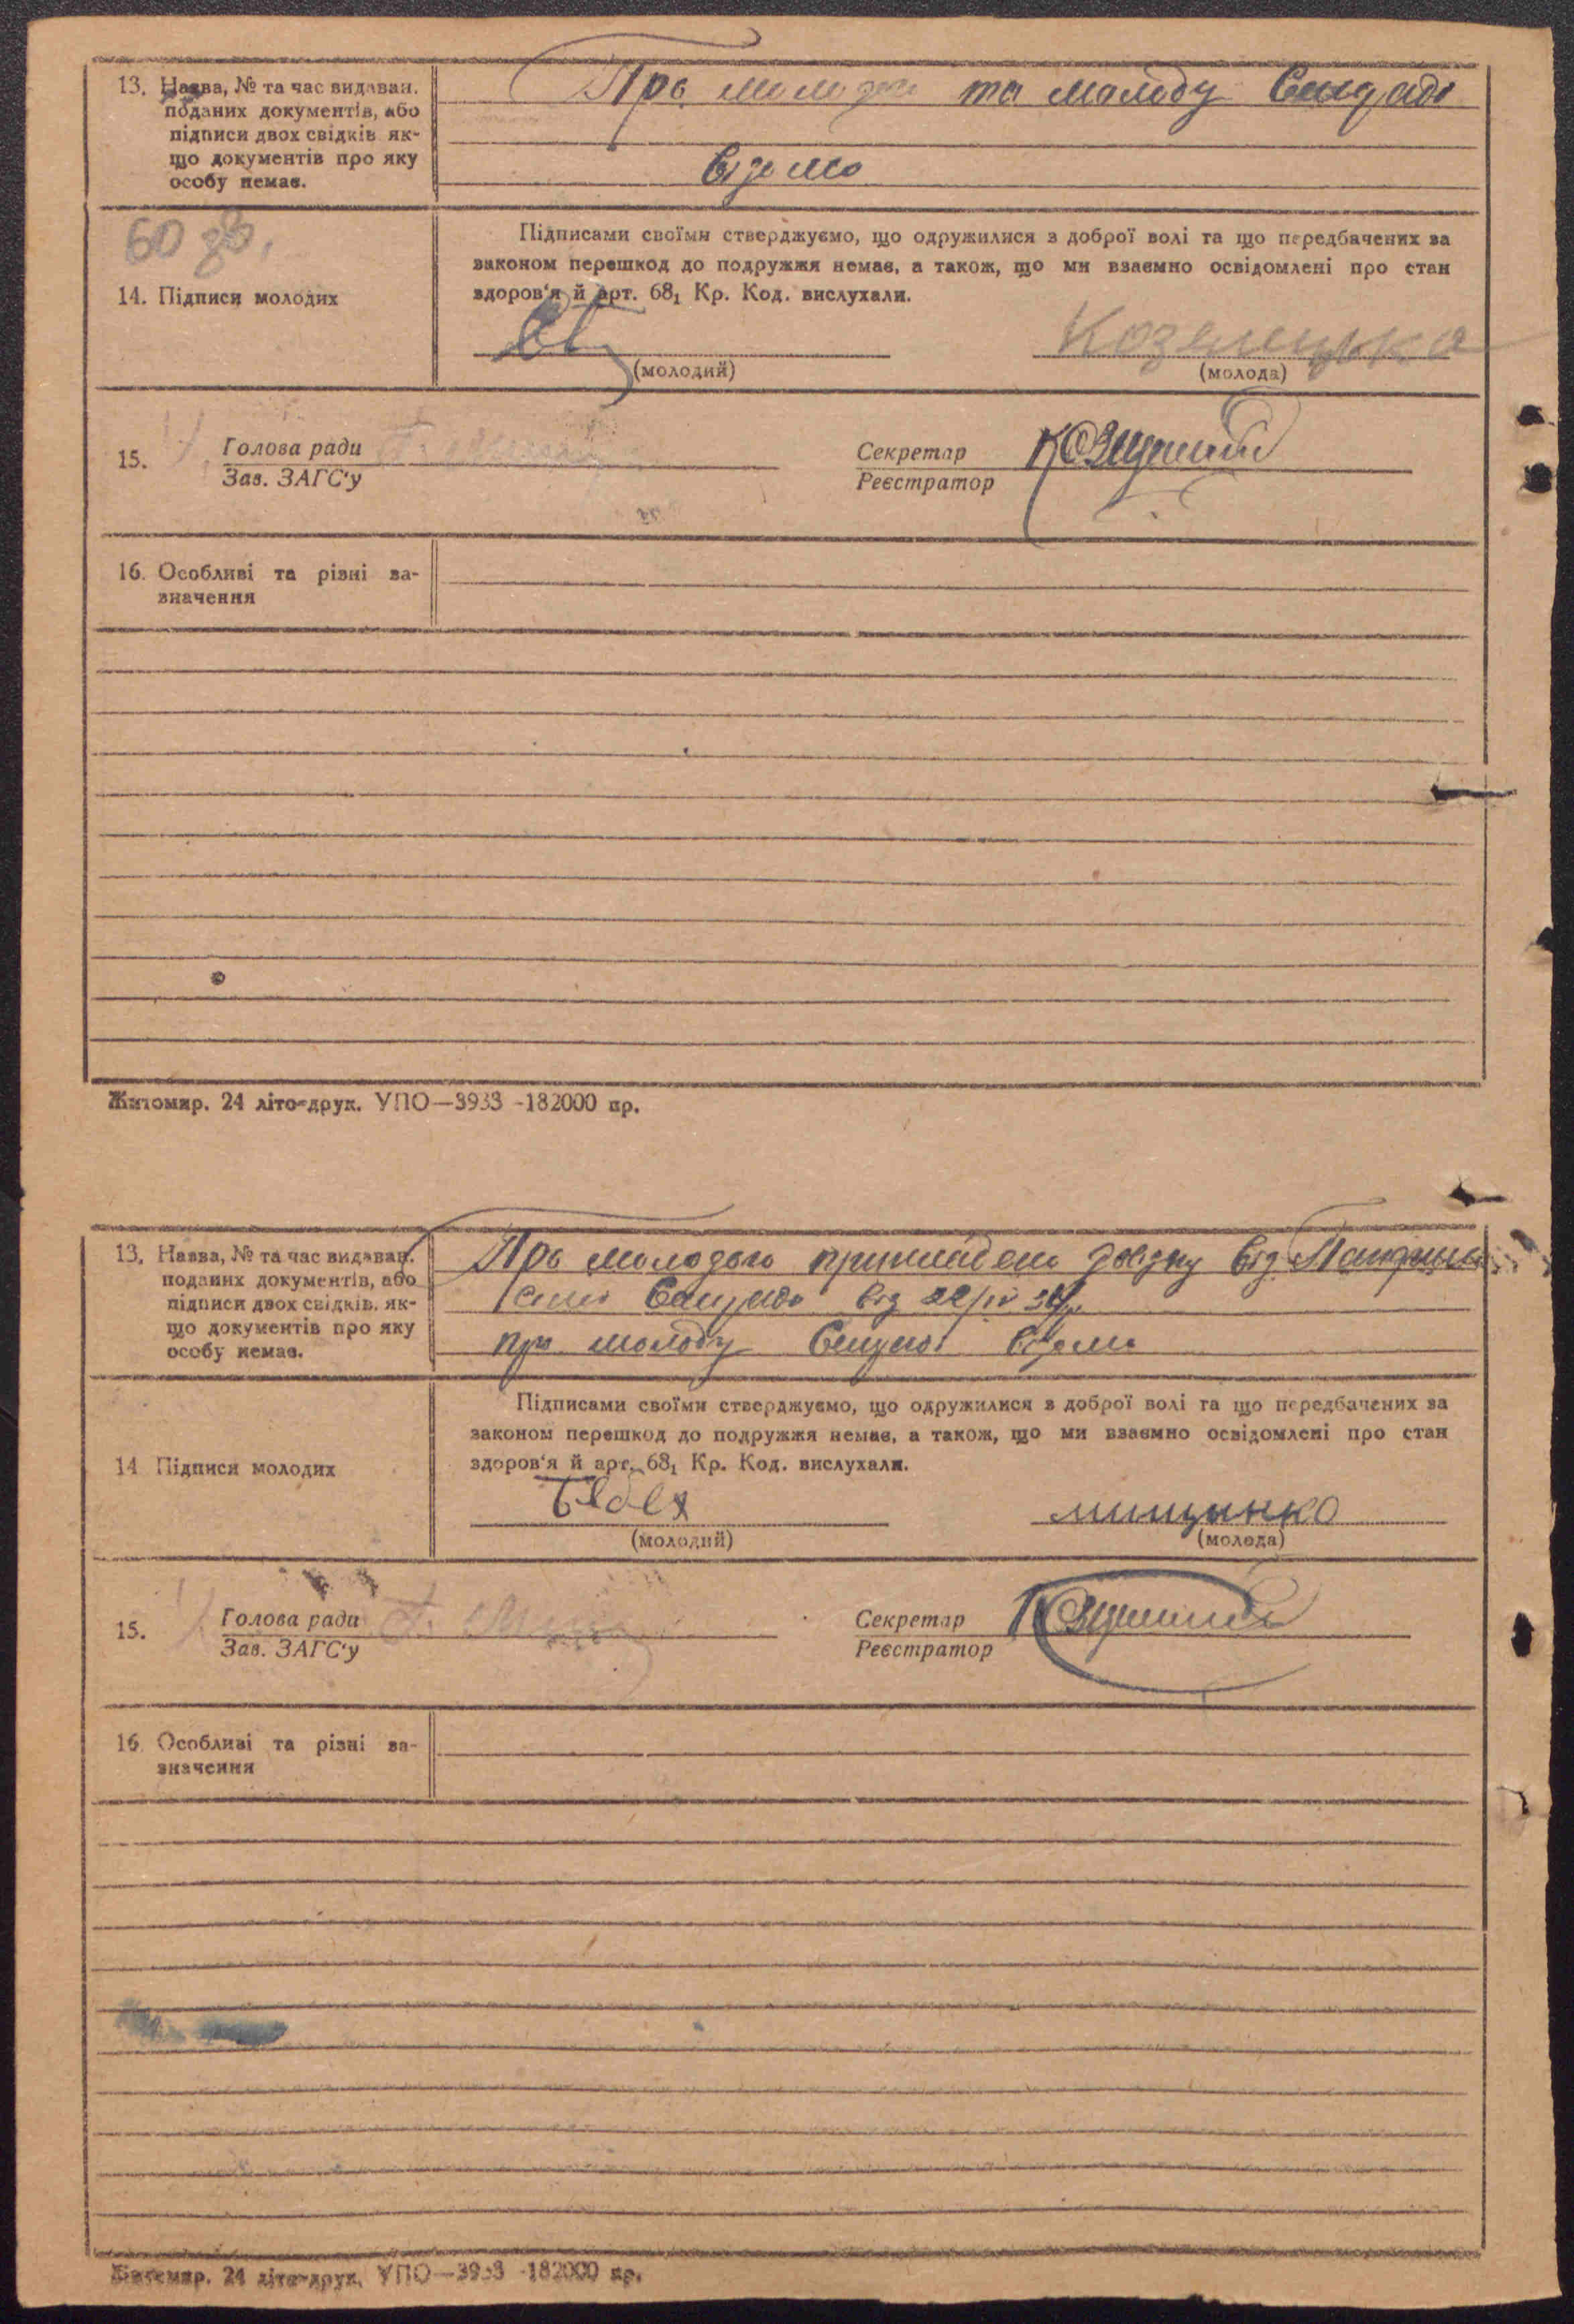 13. Назва, № та час видаван.
поданих документів, або
підписи двох свідків як-
що документів про яку
особу немає.
Про молодого та молоду Сельраді
відомо
60 зв.
Підписами своїми стверджуємо, що одружилися з доброї волі та що передбачених за
законом перешкод до подружжя немає, а також, що ми взаємно освідомлені про стан
здоров'я й арт. 68₁ Кр. Код. вислухали.
14. Підписи молодих
(молодий)
(молода)
15.
Голова ради
Зав. ЗАГС'у
Секретар
Реєстратор
16. Особливі та різні за-
значення
Житомир. 24 літо-друк. УПО—3933-182000 пр.
13. Назва, № та час видаван.
поданих документів, або
підписи двох свідків, як-
що документів про яку
особу немає.
Про молодого довідку від
від
про молоду відомо
Підписами своїми стверджуємо, що одружилися з доброї волі та що передбачених за
законом перешкод до подружжя немає, а також, що ми взаємно освідомлені про стан
здоров'я й арт. 68₁ Кр. Код. вислухали.
14 Підписи молодих
мищынко
(молодий)
(молода)
15.
Голова ради
Зав. ЗАГС'у
Секретар
Реєстратор
16. Особливі та різні за-
значення
Житомир. 24 літо-друк. УПО—3933-182000 пр.